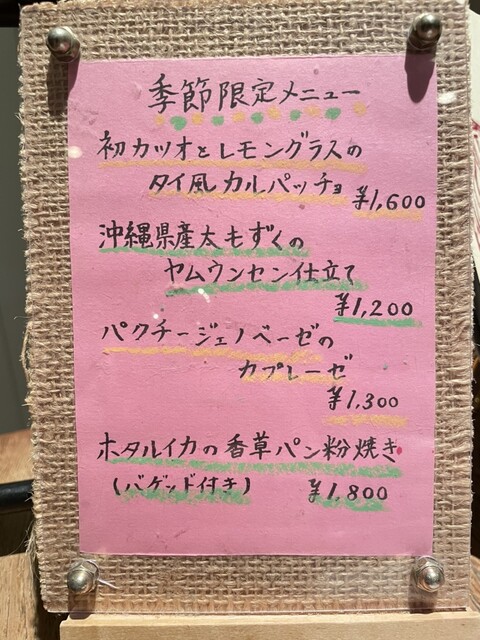 季節限定メニュー
初カツオとレモングラスの
タイ風カルパッチョ ¥1,600
沖縄県産太もずくの
ヤムウンセン仕立て
¥1,200
パクチージェノベーゼの
カプレーゼ
¥1,300
ホタルイカの香草パン粉焼き
(バゲッド付き) ¥1,800